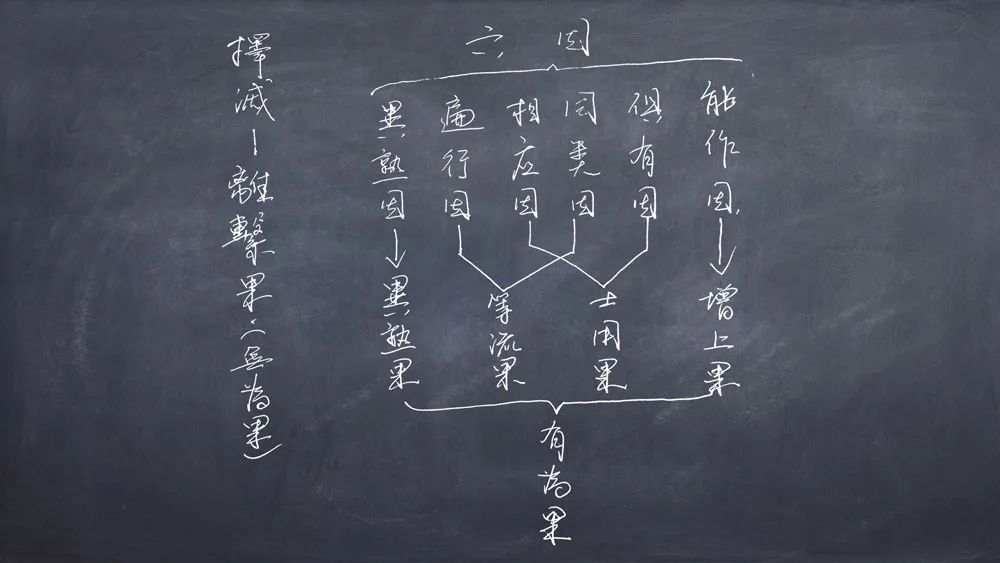 六因
能作因
俱有因
同类因
相应因
遍行因
異熟因
增上果
士用果
等流果
異熟果
有为果
擇滅-離繫果(無为果)